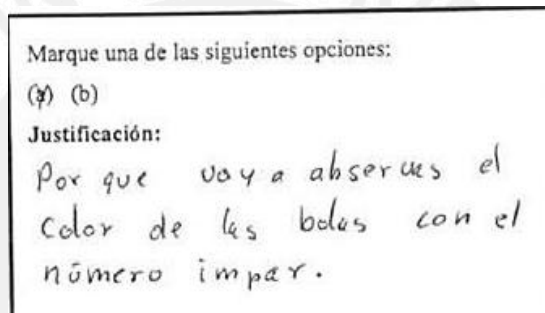 Marque una de las siguientes opciones:
(a) (b)
Justificación:
Por que voy a observas el
Color de las bolas con el
número impar.